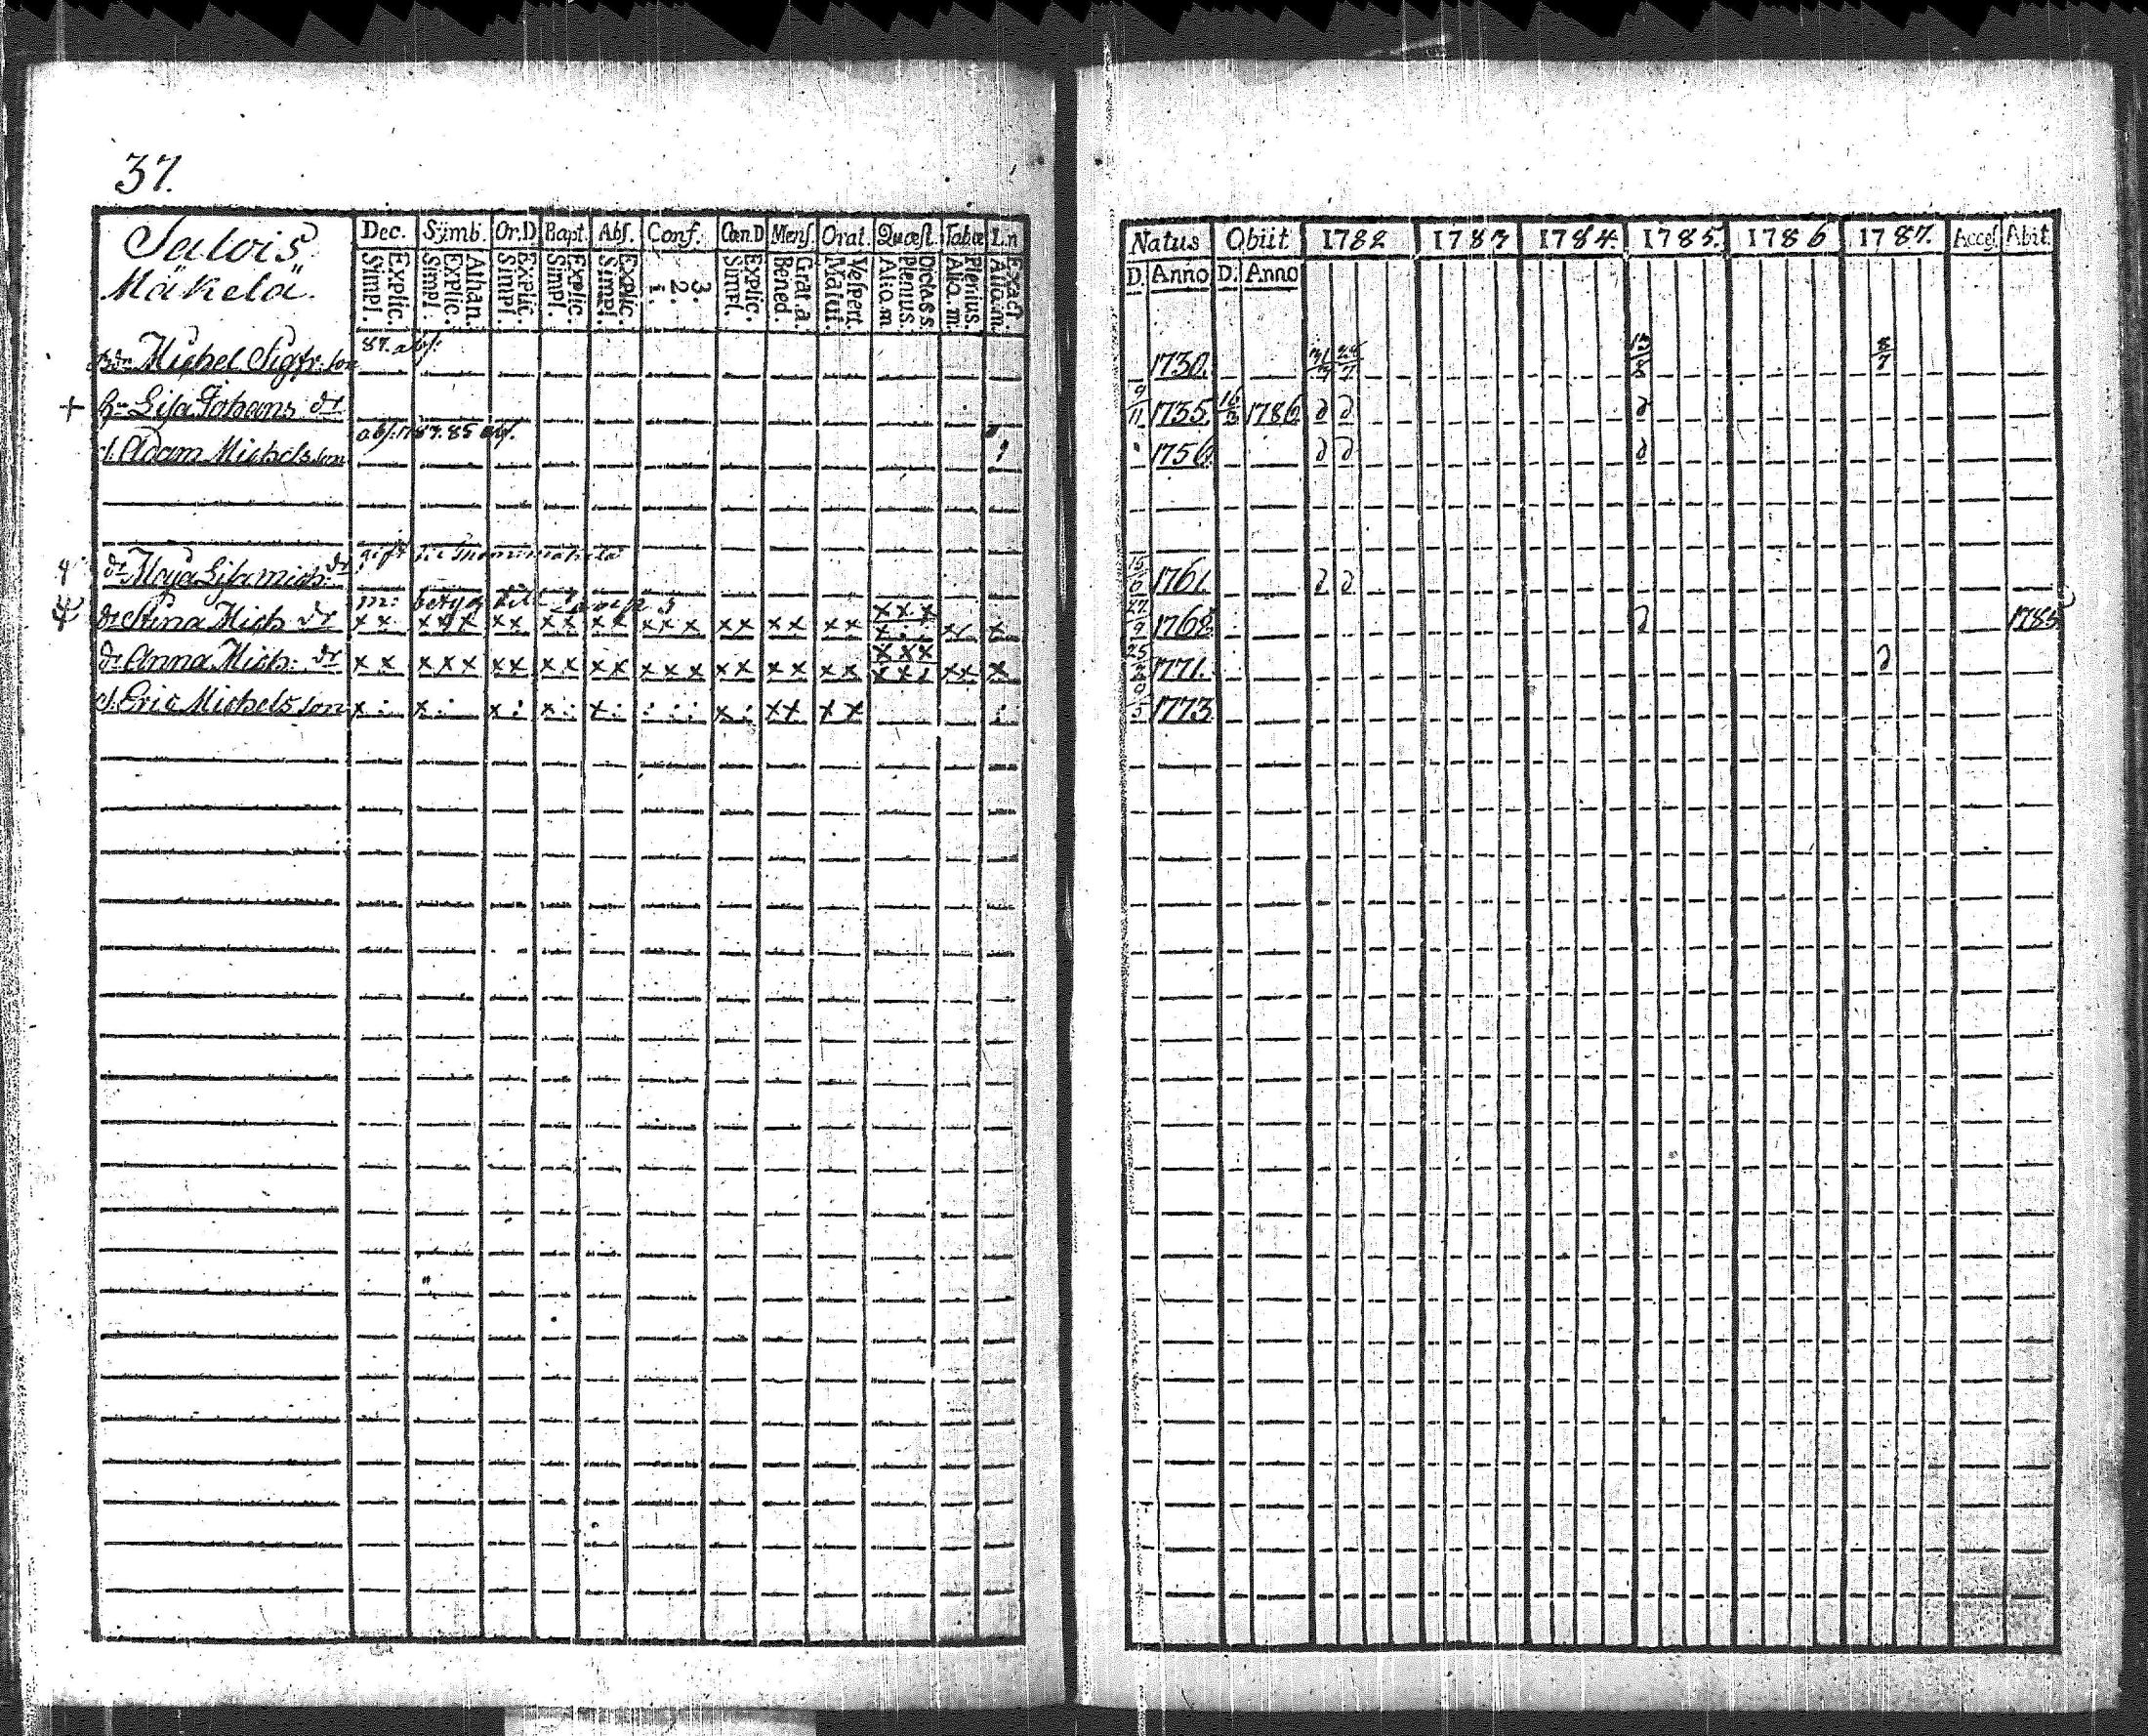 37.
Salois
Mäkelä.
Dec. Symb. Or.D Bapt. Abs. Conf. Cœn.D Mens. Orat. Quæst. Tabœ I.n
Explic. Simpl. Athan. Explic. Simpl. Explic. Simpl. Explic. Simpl. Explic. Simpl. 3. 2. 1. Explic. Simpl. Grat.a. Bened. Vespert. Matut. Dictass. Plenius. Aliq.m Plenius. Aliq.m. Exact. Aliq.m.
87. abs:
Michel Sigfr. son
+ hu Lisa Johans dr
abs. 85 abs.
s. Adam Michels son
gift
dr Maja Lisa Mich: dr
m: betyg till
dr Stina Mich dr x x x x x x x x x x x x x x x x x x x x
x x x
dr Anna Mich: dr x x x x x x x x x x x x x x x x x x x x
x x x
s. Eric Michels son x : x : x : x : x : : : : x : x x x x :
Natus Obiit 1782 1783 1784. 1785. 1786 1787. Acces. Abit.
D. Anno D. Anno
1730. 8/7
9/11 1735. 16/3 1786 ∂ ∂ ∂
1756. ∂ ∂ ∂
1761. ∂ ∂
27/9 1768. ∂ 1785
25/2 1771. ∂
9/5 1773